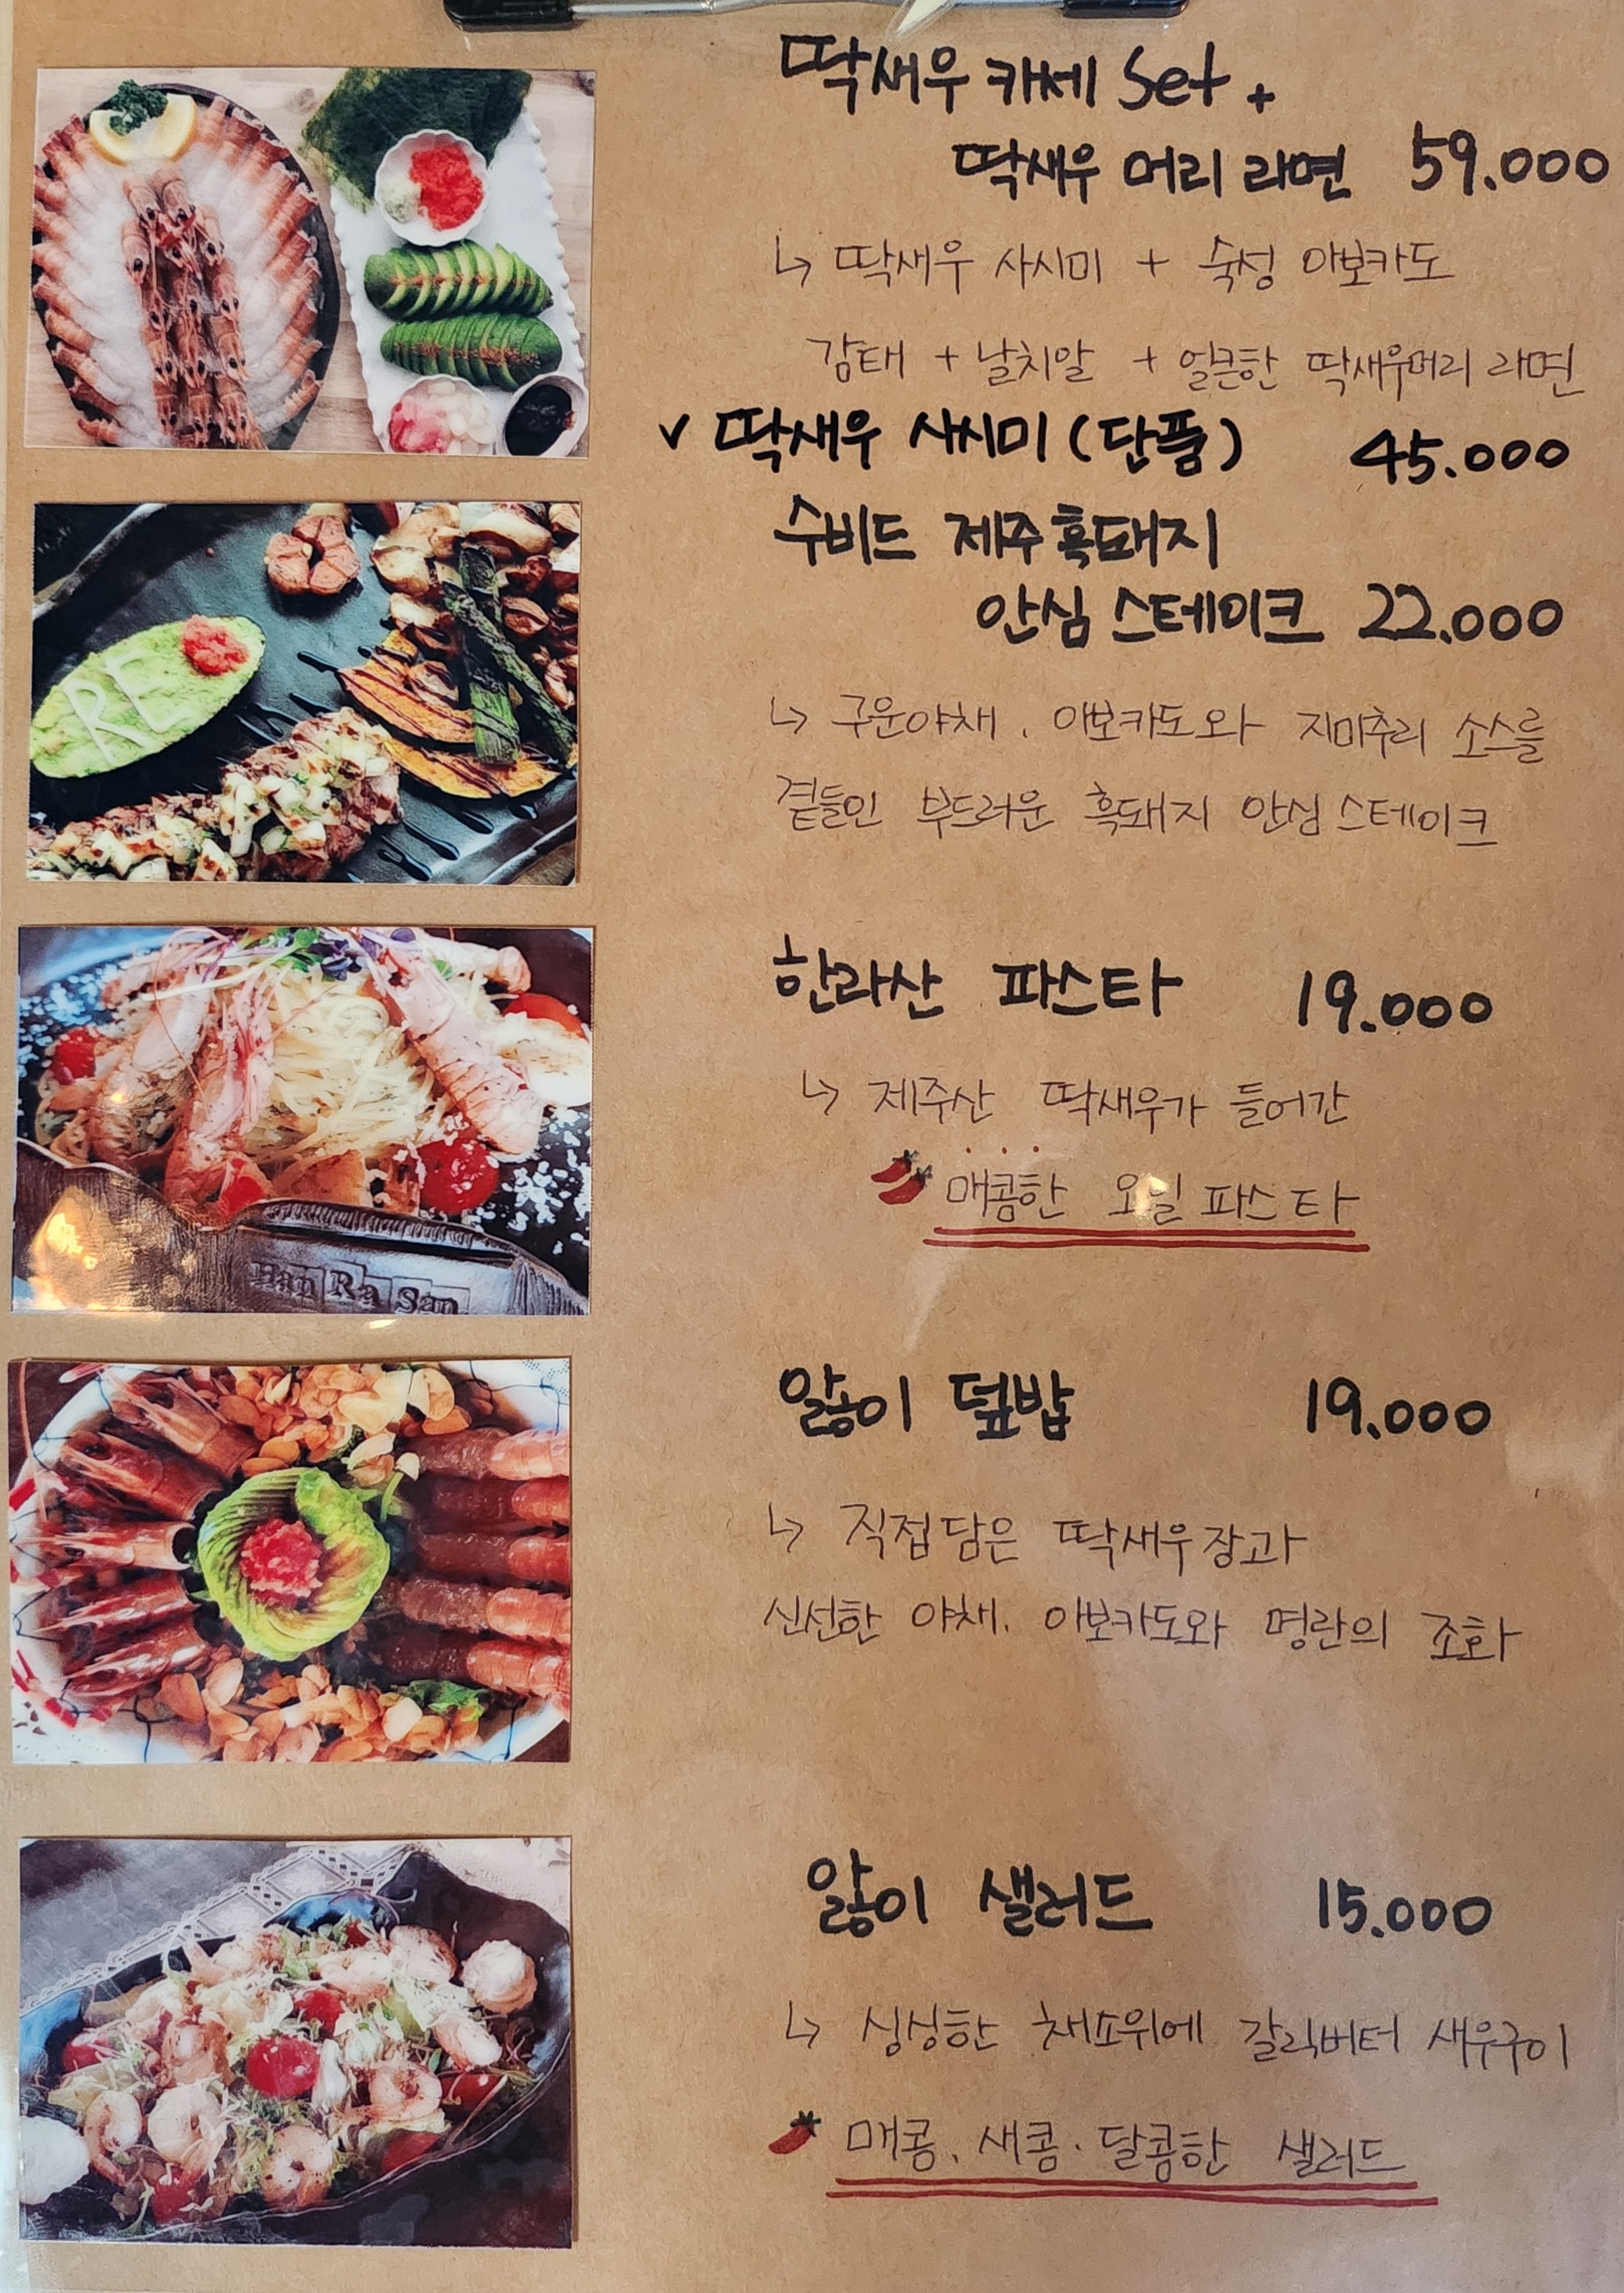 딱새우 카세 Set +
딱새우 머리 라면 59.000
↳ 딱새우 사시미 + 숙성 아보카도
감태 + 날치알 + 얼큰한 딱새우머리 라면
v 딱새우 사시미 (단품) 45.000
수비드 제주흑돼지
안심 스테이크 22.000
RE
↳ 구운야채. 아보카도와 치미추리 소스를
곁들인 부드러운 흑돼지 안심 스테이크
한라산 파스타 19.000
↳ 제주산 딱새우가 들어간
매콤한 오일 파스타
Han Ra San
앓이 덮밥 19.000
↳ 직접담은 딱새우장과
신선한 야채. 아보카도와 명란의 조화
앓이 샐러드 15.000
↳ 싱싱한 채소위에 갈릭버터 새우구이
매콤. 새콤. 달콤한 샐러드